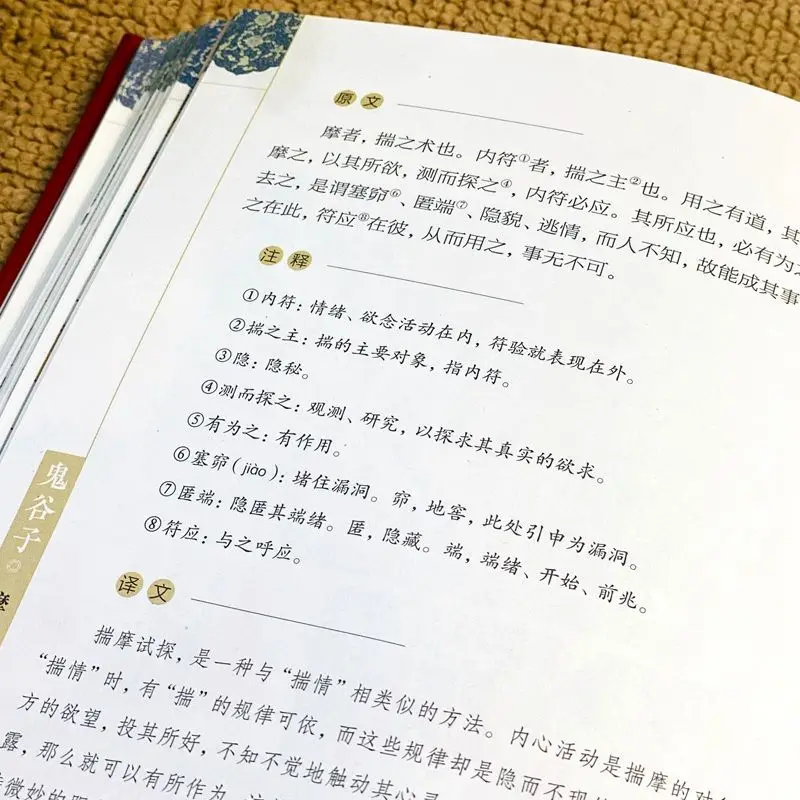 原文
摩者，揣之术也。内符①者，揣之主②也。用之有道，其
摩之，以其所欲，测而探之④，内符必应。其所应也，必有为之
去之，是谓塞窌⑥、匿端⑦、隐貌、逃情，而人不知，故能成其事
之在此，符应⑧在彼，从而用之，事无不可。
注释
①内符：情绪、欲念活动在内，符验就表现在外。
②揣之主：揣的主要对象，指内符。
③隐：隐秘。
④测而探之：观测、研究，以探求其真实的欲求。
⑤有为之：有作用。
⑥塞窌（jiào）：堵住漏洞。窌，地窖，此处引申为漏洞。
⑦匿端：隐匿其端绪。匿，隐藏。端，端绪、开始、前兆。
⑧符应：与之呼应。
鬼谷子
译文
揣摩试探，是一种与“揣情”相类似的方法。内心活动是揣摩的对
“揣情”时，有“揣”的规律可依，而这些规律却是隐而不现
方的欲望，投其所好，不知不觉地触动其心灵
露，那么就可以有所作为
微妙的